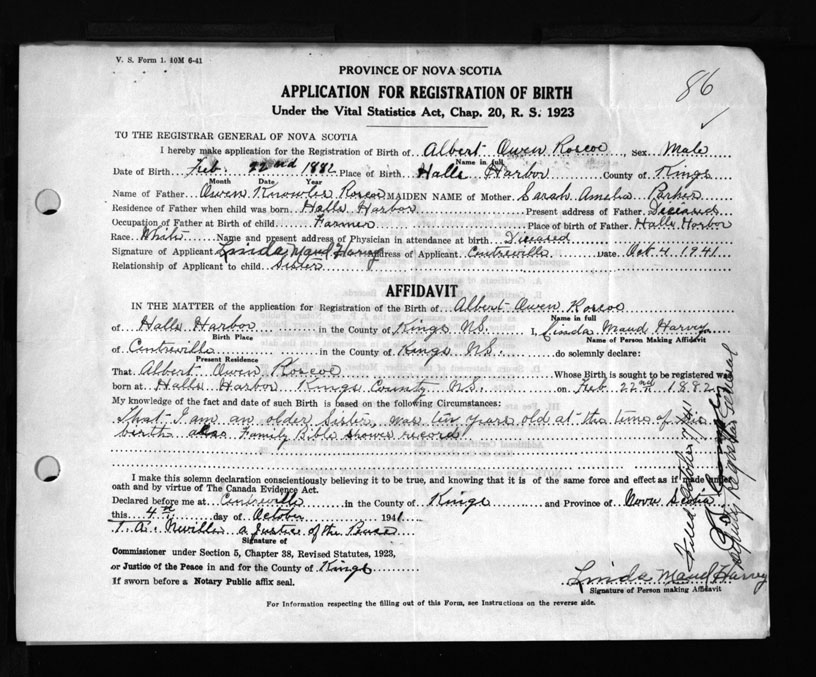 V. S. Form 1. 10M 6-41
86
PROVINCE OF NOVA SCOTIA
APPLICATION FOR REGISTRATION OF BIRTH
Under the Vital Statistics Act, Chap. 20, R. S. 1923
TO THE REGISTRAR GENERAL OF NOVA SCOTIA
I hereby make application for the Registration of Birth of Albert Owen Roscoe, Sex Male
Name in full
Date of Birth Feb. 22nd 1882 Place of Birth Halls Harbor County of Kings
Month Date Year
Name of Father Owen Knowles Roscoe MAIDEN NAME of Mother Sarah Amelia Parker
Residence of Father when child was born Halls Harbor Present address of Father Diceased
Occupation of Father at Birth of child Farmer Place of birth of Father Halls Harbor
Race White Name and present address of Physician in attendance at birth Diceased
Signature of Applicant Linda Maud Harvey Address of Applicant Centreville Date Oct 4 1941
Relationship of Applicant to child Sister
AFFIDAVIT
IN THE MATTER of the application for Registration of the Birth of Albert Owen Roscoe
Name in full
of Halls Harbor in the County of Kings N.S. I, Linda Maud Harvey
Birth Place Name of Person Making Affidavit
of Centreville in the County of Kings N.S. do solemnly declare:
Present Residence
That Albert Owen Roscoe Whose Birth is sought to be registered was
born at Halls Harbor Kings County N.S. on Feb 22nd 1882
My knowledge of the fact and date of such Birth is based on the following Circumstances:
That I am an older Sister, was ten years old at the time of his
birth also Family Bible shows record
I make this solemn declaration conscientiously believing it to be true, and knowing that it is of the same force and effect as if made under
oath and by virtue of The Canada Evidence Act.
Declared before me at Centreville in the County of Kings and Province of Nova Scotia
this 4th day of October 1941
T. A. Neville a Justice of the Peace
Signature of
Commissioner under Section 5, Chapter 38, Revised Statutes, 1923,
or Justice of the Peace in and for the County of Kings
If sworn before a Notary Public affix seal.
Linda Maud Harvey
Signature of Person making Affidavit
For Information respecting the filling out of this Form, see Instructions on the reverse side.
Filed October
Deputy Registrar General